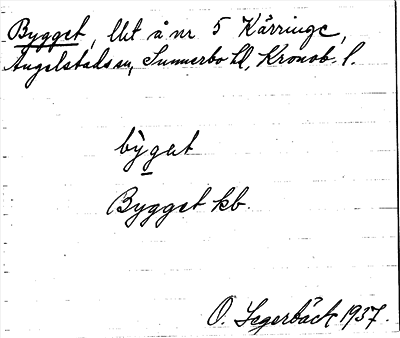 Bygget, llt å nr 5 Kärringe,
Angelstads sn, Sunnerbo hd, Kronob. l.
bỳgat
Bygget kb.
O. Segerbäck 1937.